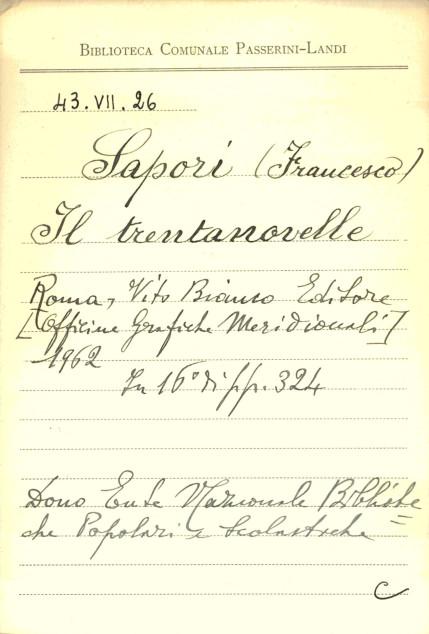 BIBLIOTECA COMUNALE PASSERINI-LANDI
43.VII.26
Sapori (Francesco)
Il trentanovelle
Roma, Vito Bianco Editore
[Officine Grafiche Meridionali]
1962
In 16° di pp. 324
Dono Ente Nazionale Bibliote=
che Popolari e Scolastiche
C